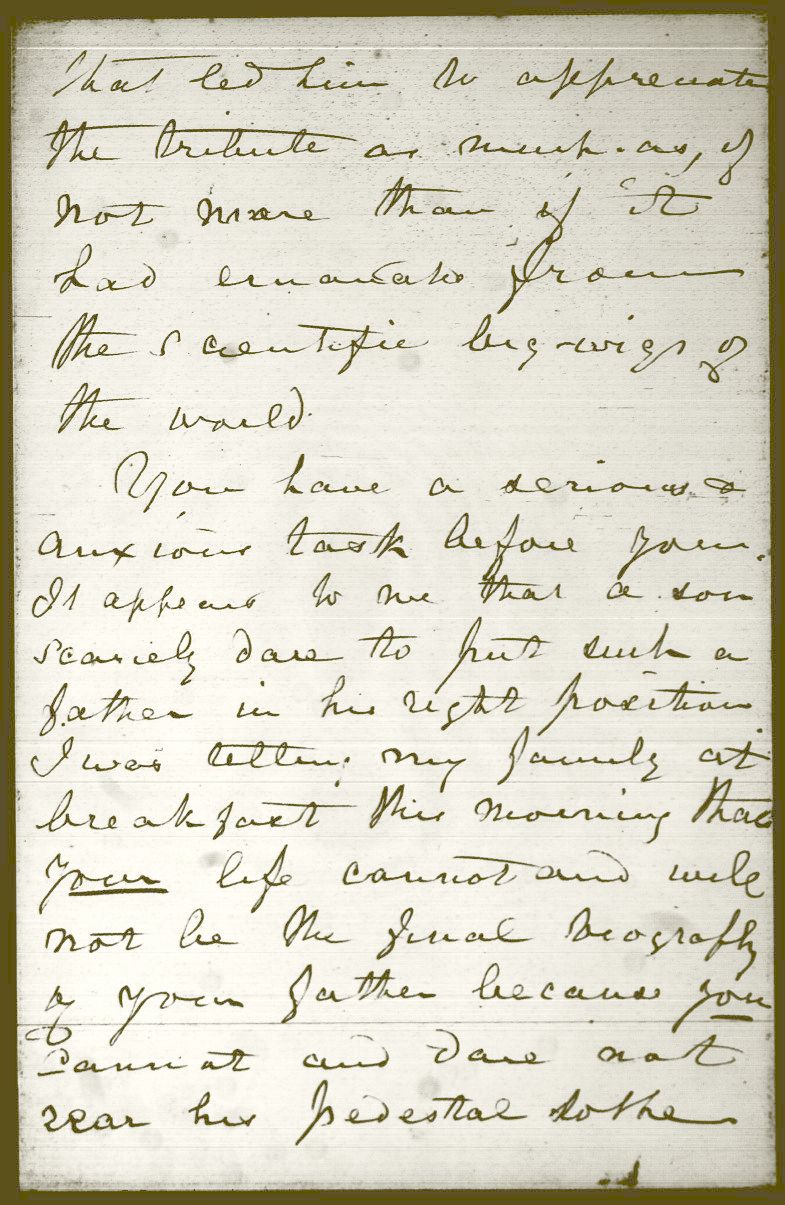 that led him to appreciate
the tribute as much as, if
not more than if it
had emanated from
the scientific big-wigs of
the world.
You have a serious &
anxious task before you.
It appears to me that a son
scarcely dare to put such a
father in his right position.
I was telling my family at
breakfast this morning that
your life cannot and will
not be the final biography
of your father because you
cannot and dare not
rear his pedestal to the